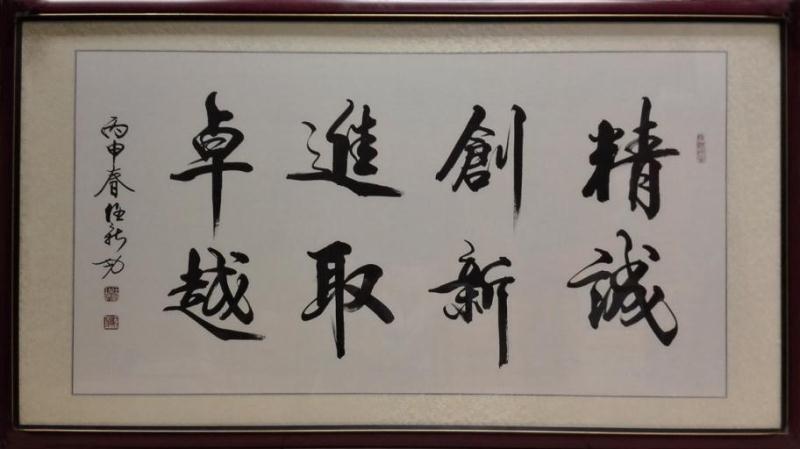 精誠
創新
進取
卓越
丙申春